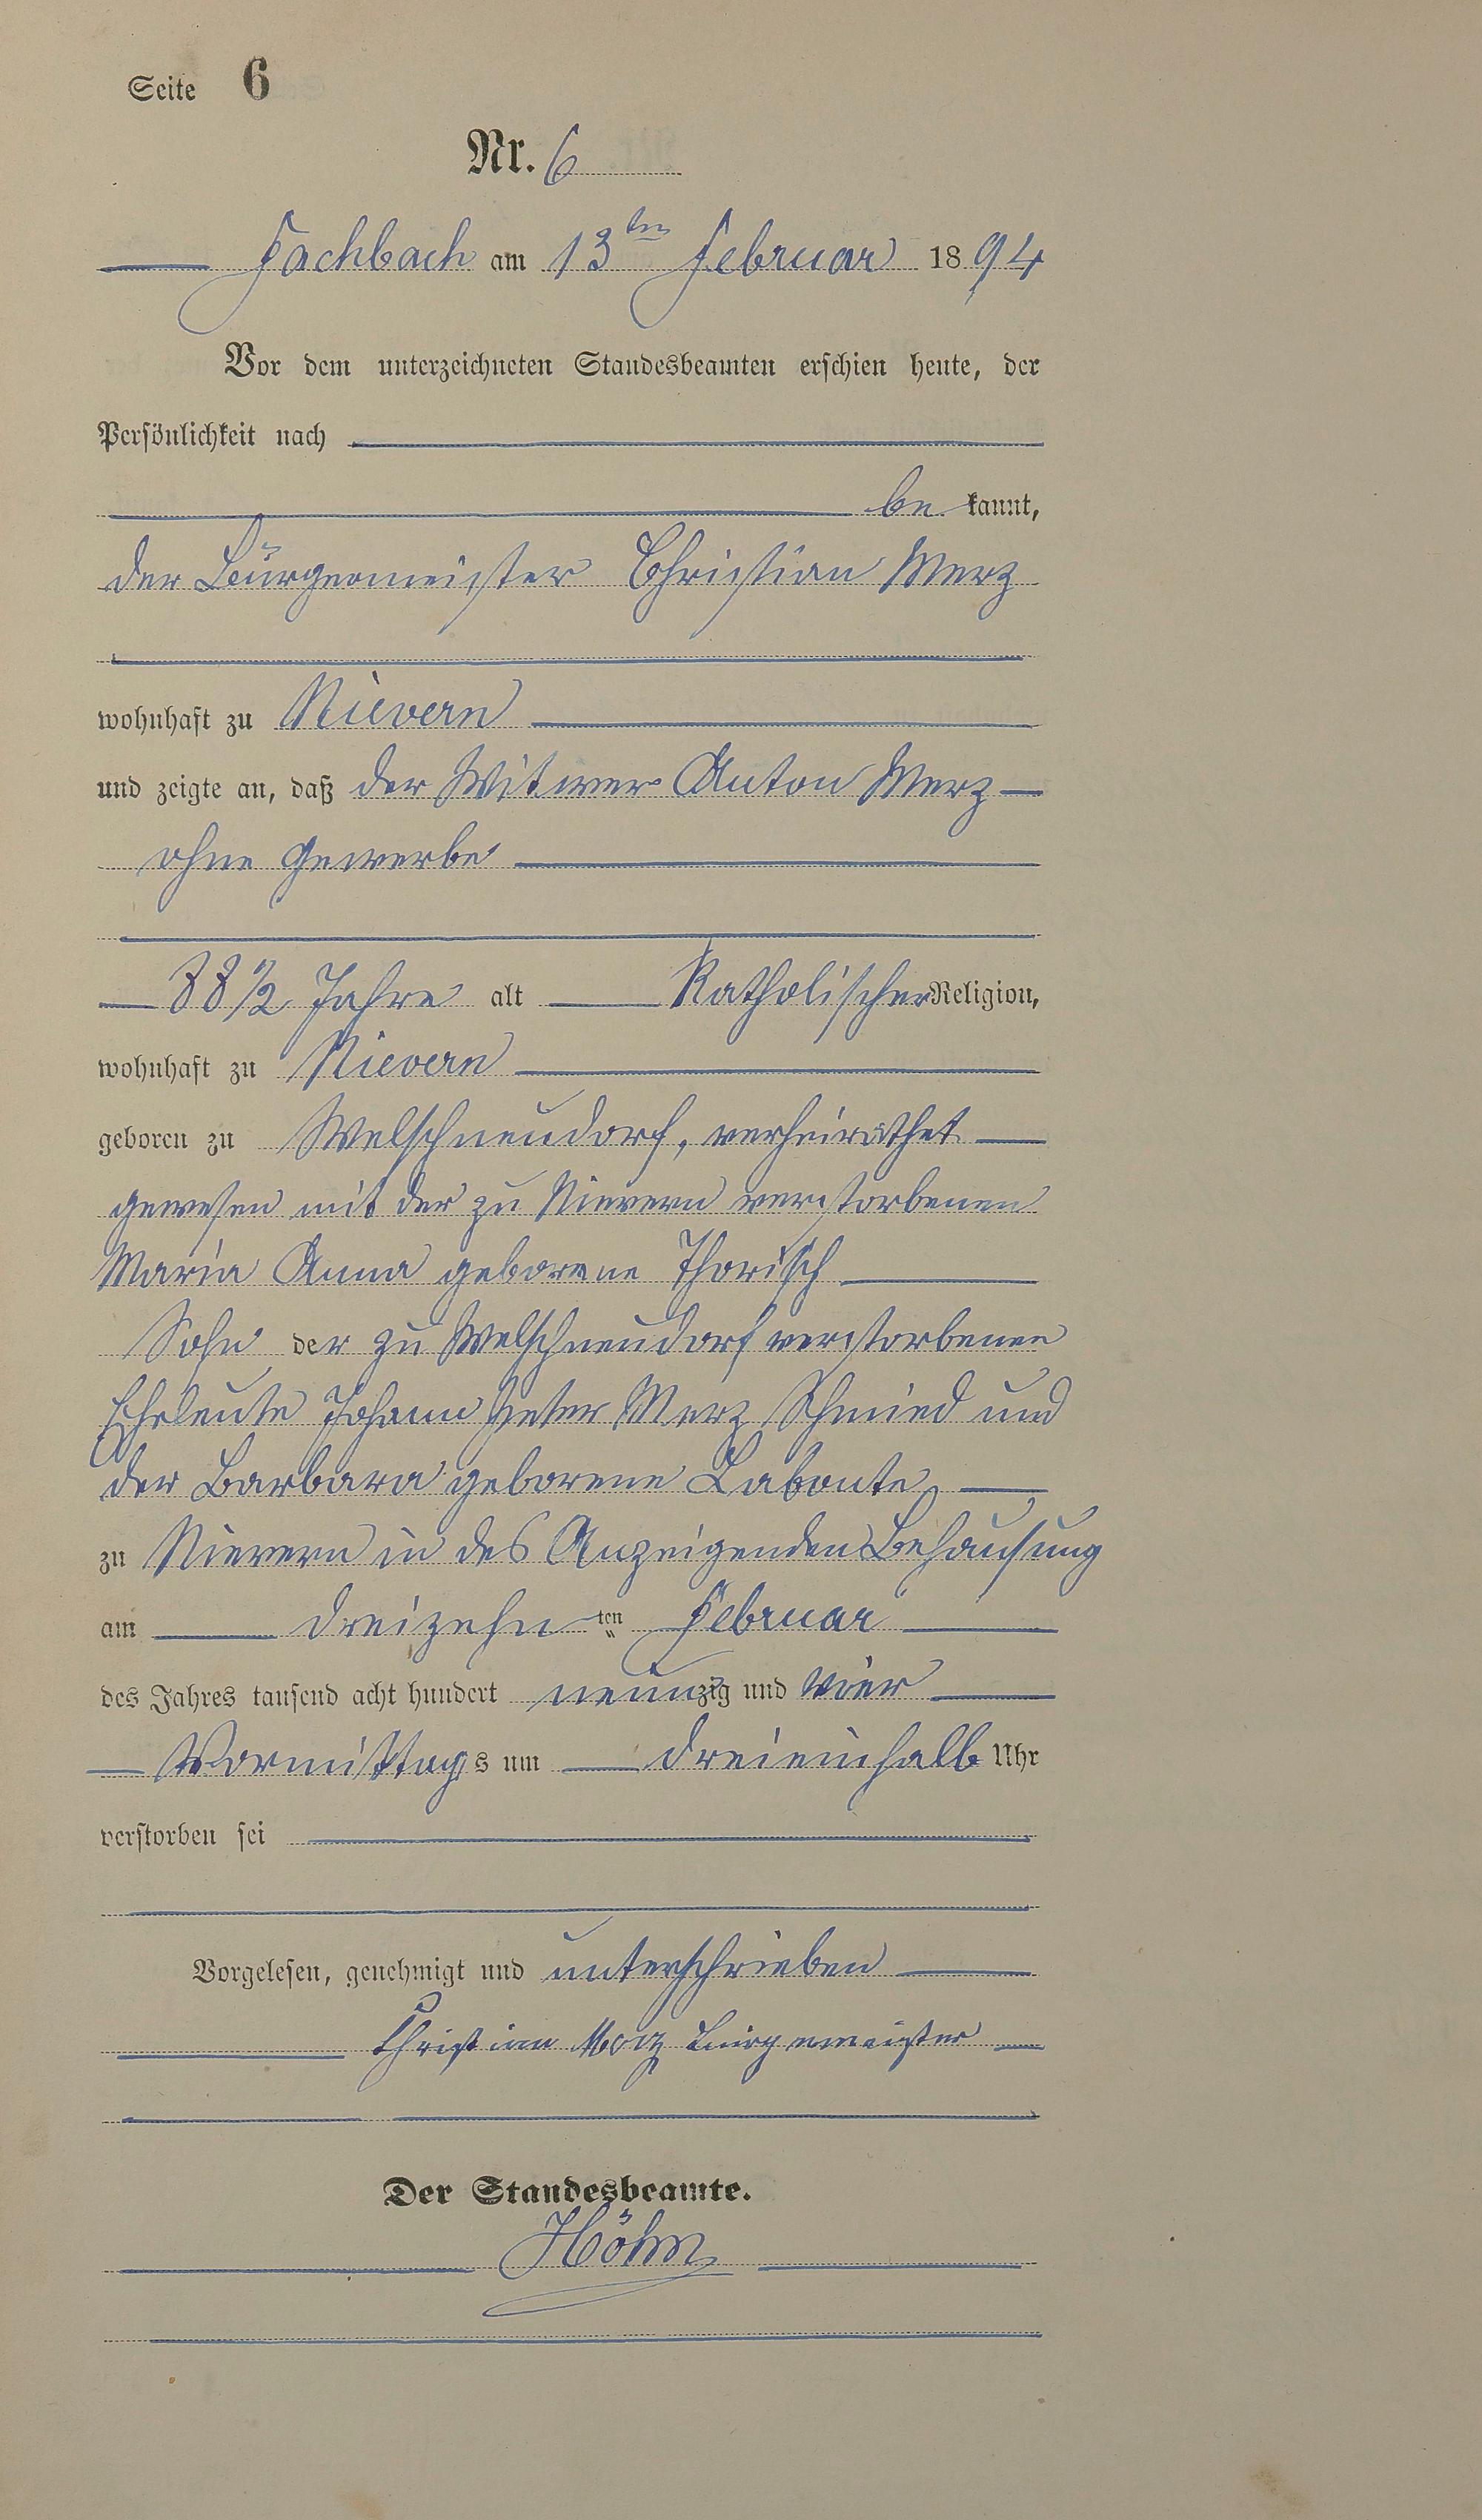 Seite 6
Nr. 6
Fachbach am 13ten Februar 1894
Vor dem unterzeichneten Standesbeamten erschien heute, der
Persönlichkeit nach
bekannt,
der Bürgermeister Christian Merz
wohnhaft zu Nievern
und zeigte an, daß der Witwer Anton Merz
ohne Gewerbe
88 1/2 Jahre alt Katholischer Religion,
wohnhaft zu Nievern
geboren zu Welschneudorf, verheirathet
gewesen mit der zu Nievern verstorbenen
Maria Anna geborene Thorisch
Sohn der zu Welschneudorf verstorbenen
Eheleute Johann Peter Merz Schmied und
der Barbara geborene Labonte
zu Nievern in des Anzeigenden Behausung
am dreizehnten Februar
des Jahres tausend acht hundert neunzig und vier
Vormittags um dreieinhalb Uhr
verstorben sei
Vorgelesen, genehmigt und unterschrieben
Christian Merz Bürgermeister
Der Standesbeamte.
Höhn